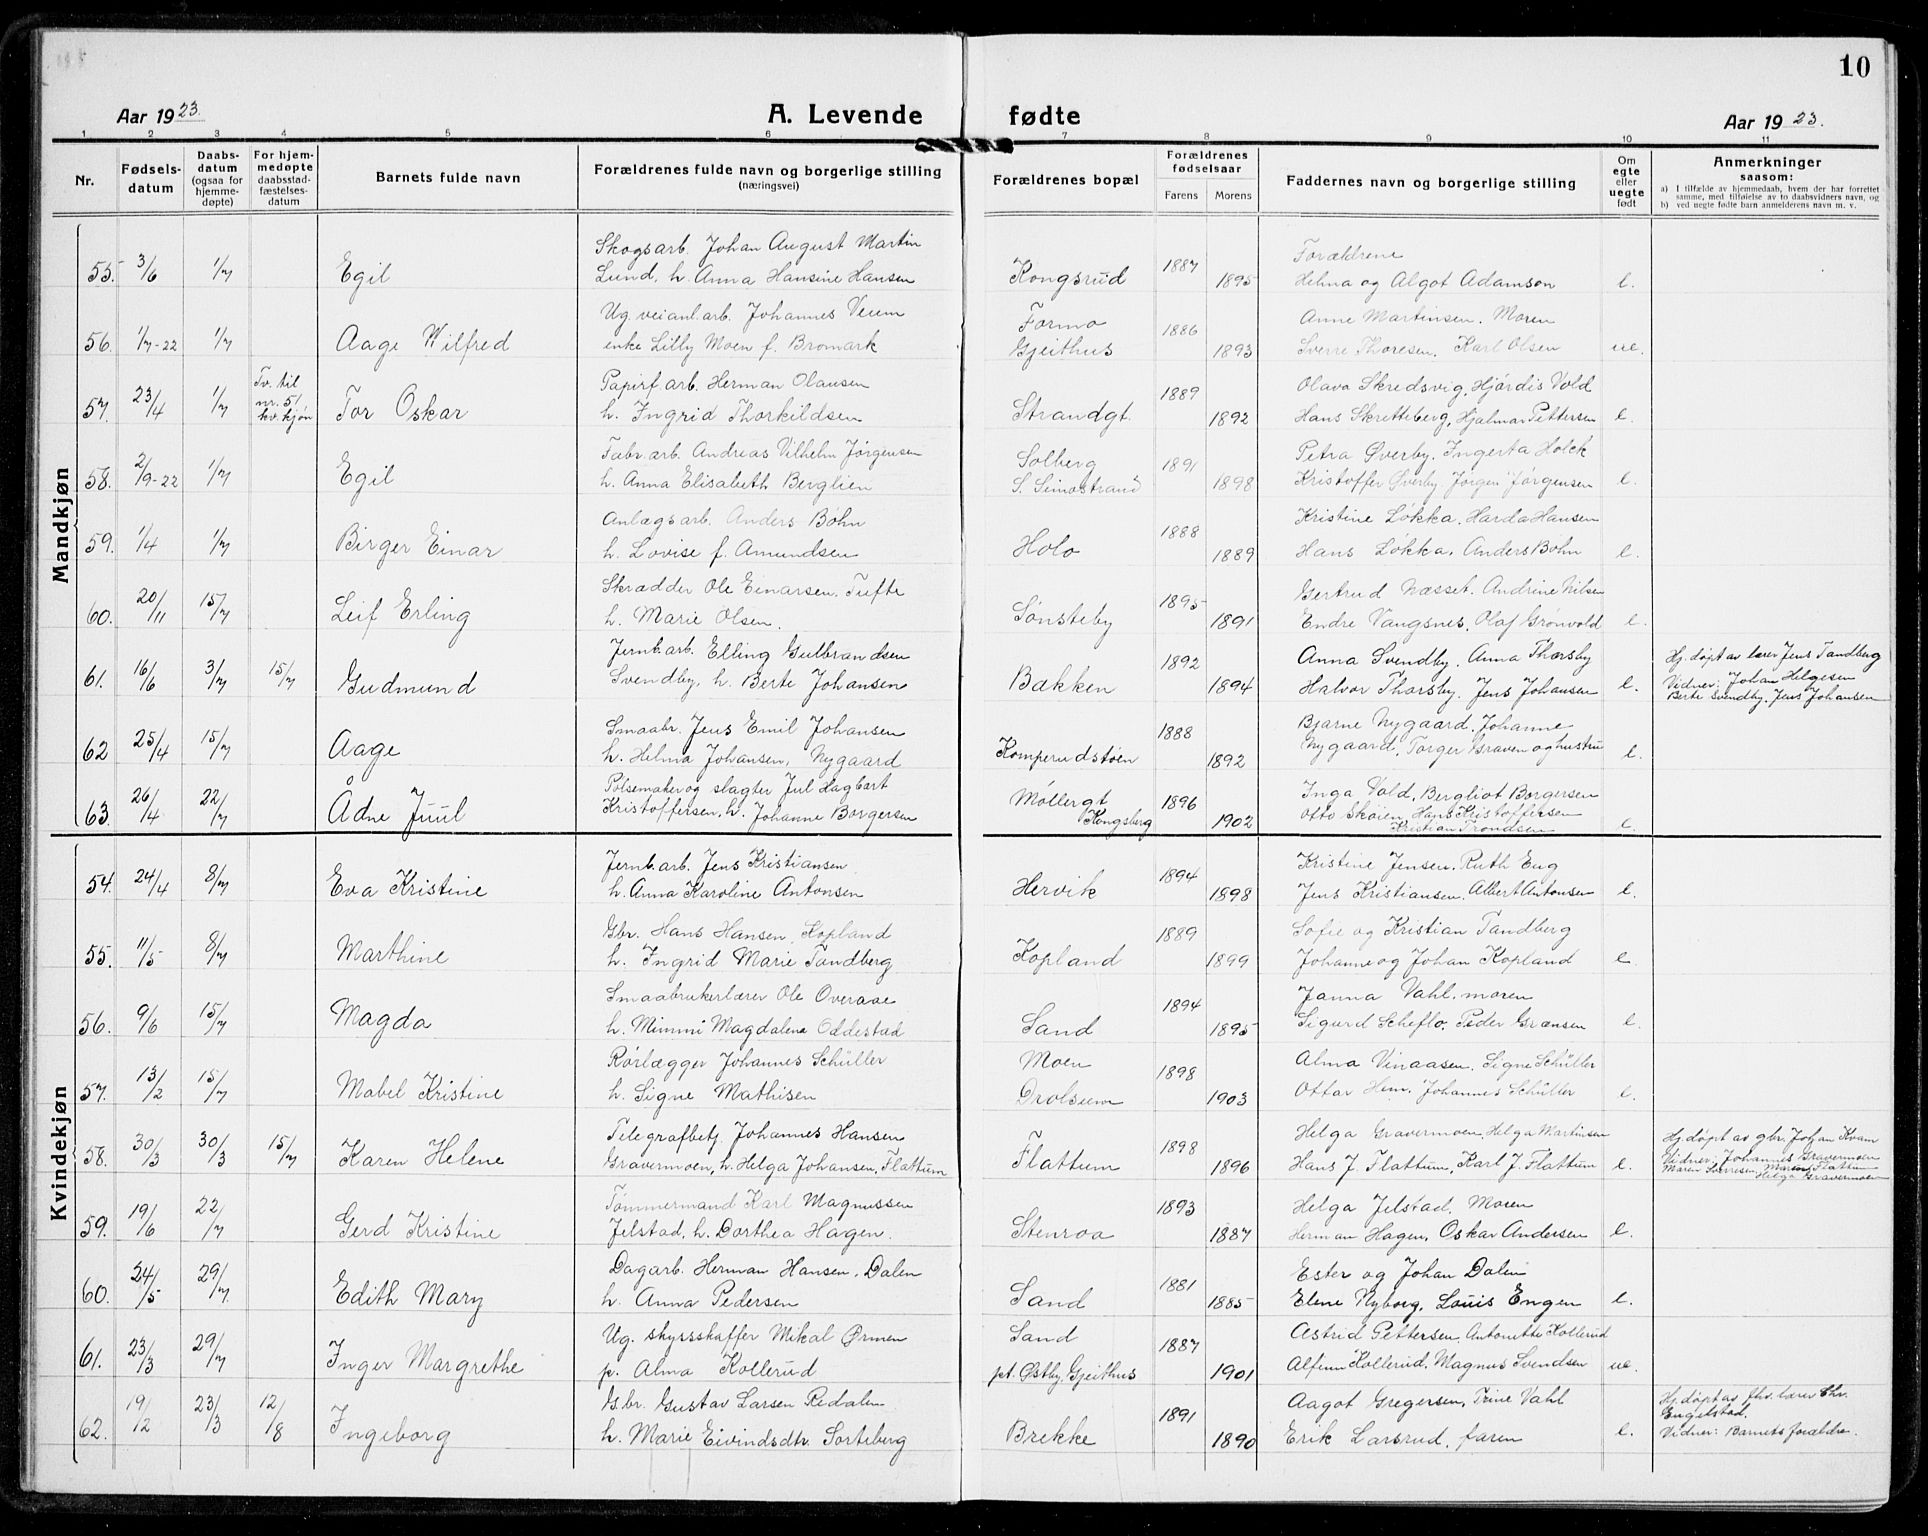 10
Aar 1923.
A. Levende fødte
Aar 1923.
1 2 3 4 5 6 7 8 9 10 11
Nr.
Fødsels-
datum
Daabs-
datum
(ogsaa for
hjemme-
døpte)
For hjem-
medøpte
daabsstad-
fæstelses-
datum
Barnets fulde navn
Forældrenes fulde navn og borgerlige stilling
(næringsvei)
Forældrenes bopæl
Forældrenes
fødselsaar
Farens Morens
Faddernes navn og borgerlige stilling
Om
egte
eller
uegte
født
Anmerkninger
saasom:
a) I tilfælde av hjemmedaab, hvem der har forrettet
samme, med tilføielse av to daabsvidners navn, og
b) ved uegte fødte barn anmelderens navn m. v.
Mandkjøn
55. 3/6 1/7 Egil
Skogsarb. Johan August Martin
Lund, h. Anna Hansine Hansen
Kongsrud 1887 1895
Forældrene
Helma og Algot Adamson e.
56. 1/7-22 1/7 Aage Wilfred
Ug. veianl.arb. Johannes Veum
enke Lilly Moen f. Bromark
Formo
Gjeithus
1886 1893
Anne Martinsen. Moren
Sverre Thoresen, Karl Olsen ue.
57. 23/4 1/7
Tv. til
nr. 51
kv. kjøn
Tor Oskar
Papirf.arb. Herman Olausen
h. Ingrid Thorkildsen
Strandgt. 1889 1892
Olava Skredsvig, Hjørdis Vold
Hans Skretteberg, Hjalmar Pettersen e.
58. 2/9-22 1/7 Egil
Fabr.arb. Andreas Vilhelm Jørgensen
h. Anna Elisabeth Berglien
Solberg
S. Simostrand
1891 1898
Petra Øverby, Ingerta Holck
Kristoffer Øverby, Jørgen Jørgensen e.
59. 1/4 1/7 Birger Einar
Anlægsarb. Anders Bøhn
h. Lovise f. Amundsen
Holo 1888 1889
Kristine Løkka, Harda Hansen
Hans Løkka, Anders Bøhn e.
60. 20/11 15/7 Leif Erling
Skrædder Ole Einarsen Tufte
h. Marie Olsen.
Sønsteby 1895 1891
Gertrud Næsset. Andrine Nilsen
Endre Vangsnes, Olaf Grønvold e.
61. 16/6 3/7 15/7 Gudmund
Jernb.arb. Elling Gulbrandsen
Svendby, h. Berte Johansen
Bakken 1892 1894
Anna Svendby. Anna Thorsby
Halvor Thorsby. Jens Johansen e.
Hj.døpt av lærer Jens Tandberg
Vidner: Johan Helgesen
Berte Svendby. Jens Johansen
62 25/4 15/7 Aage
Smaabr. Jens Emil Johansen
h. Helma Johansen, Nygaard
Komperudstøen 1888 1892
Bjarne Nygaard. Johanne
Nygaard, Torger Graven og hustru e.
63. 26/4 22/7 Ådne Juul
Pølsemaker og slagter Jul Hagbart
Kristoffersen, h. Johanne Borgersen
Møllergt
Kongsberg
1896 1902
Inga Vold, Bergliot Borgersen
Otto Skøien, Hans Kristoffersen
Kristian Trondsen e.
Kvindekjøn
54. 24/4 8/7 Eva Kristine
Jernb.arb. Jens Kristiansen
h. Anna Karoline Antonsen
Hervik 1894 1898
Kristine Jensen. Ruth Eng
Jens Kristiansen. Albert Antonsen e.
55. 11/5 8/7 Marthine
Gbr. Hans Hansen, Kopland
h. Ingrid Marie Tandberg
Kopland 1889 1899
Sofie og Kristian Tandberg
Johanne og Johan Kopland e.
56. 9/6 15/7 Magda
Smaabrukerlærer Ole Overaae
h. Mimmi Magdalena Oddestad
Sand 1894 1895
Janna Vahl. moren
Sigurd Scheflo, Peder Grænsen e.
57. 13/2 15/7 Mabel Kristine
Rørlægger Johannes Schüller
h. Signe Mathisen
Moen
Drolsum
1898 1903
Alma Vinaasen, Signe Schüller
Ottar Hem, Johannes Schüller e.
58. 30/3 30/3 15/7 Karen Helene
Telegrafbetj. Johannes Hansen
Gravermoen, h. Helga Johansen, Flattum
Flattum 1898 1896
Helga Gravermoen, Helga Martinsen
Hans J. Flattum, Karl J. Flattum e.
Hj.døpt av gbr. Johan Kvam
Vidner: Johannes Gravermoen
Maren Flattum
Helga Gravermoen
59. 19/6 22/7 Gerd Kristine
Tømmermand Karl Magnussen
Jelstad, h. Dorthea Hagen.
Stenroa 1893 1887
Helga Jelstad, Moren
Herman Hagen, Oskar Andersen e.
60. 24/5 29/7 Edith Mary
Dagarb. Herman Hansen, Dalen
h. Anna Pedersen
Sand 1881 1885
Ester og Johan Dalen
Elene Nyborg, Louis Engen e.
61. 23/3 29/7 Inger Margrethe
Ug. skysskaffer Mikal Ørmen
p. Alma Kollerud
Sand
pt. Østby, Gjeithus
1887 1901
Astrid Pettersen, Antonette Kollerud
Kollerud, Magnus Svendsen ue.
62. 19/12 23/3 12/8 Ingeborg
Gbr. Gustav Larsen Redalen
h. Marie Eivindsdtr. Sorteberg
Brekke 1891 1890
Aagot Gregersen, Trine Vahl
Erik Larsrud, faren e.
Hj.døpt av fhv. lærer Chr.
Engelstad.
Vidner: Barnets forældre.